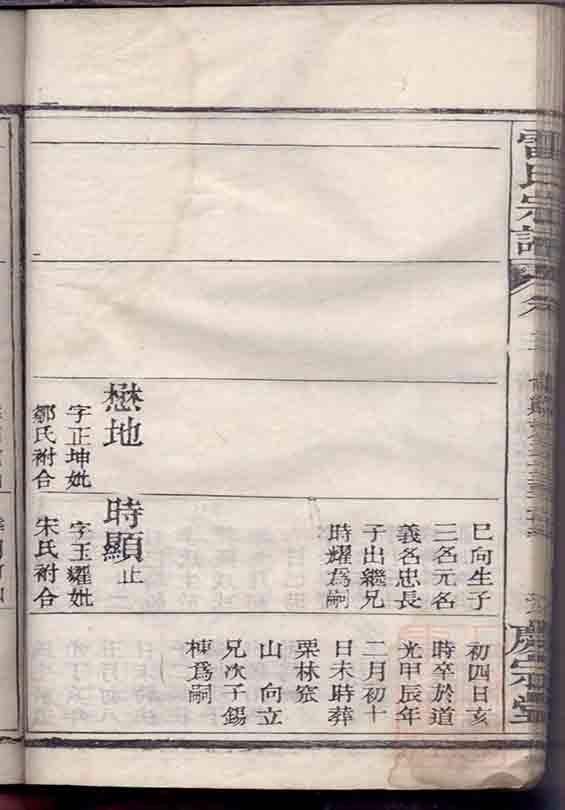 雷氏宗譜
卷
三
慶宗堂
巳向生子
三名元名
義名忠長
子出繼兄
時耀爲嗣
初四日亥
時卒於道
光甲辰年
二月初十
日未時葬
栗林
山 向立
兄次子錫
棟爲嗣
懋地
字正坤妣
鄒氏祔合
時顯止
字玉耀妣
宋氏祔合